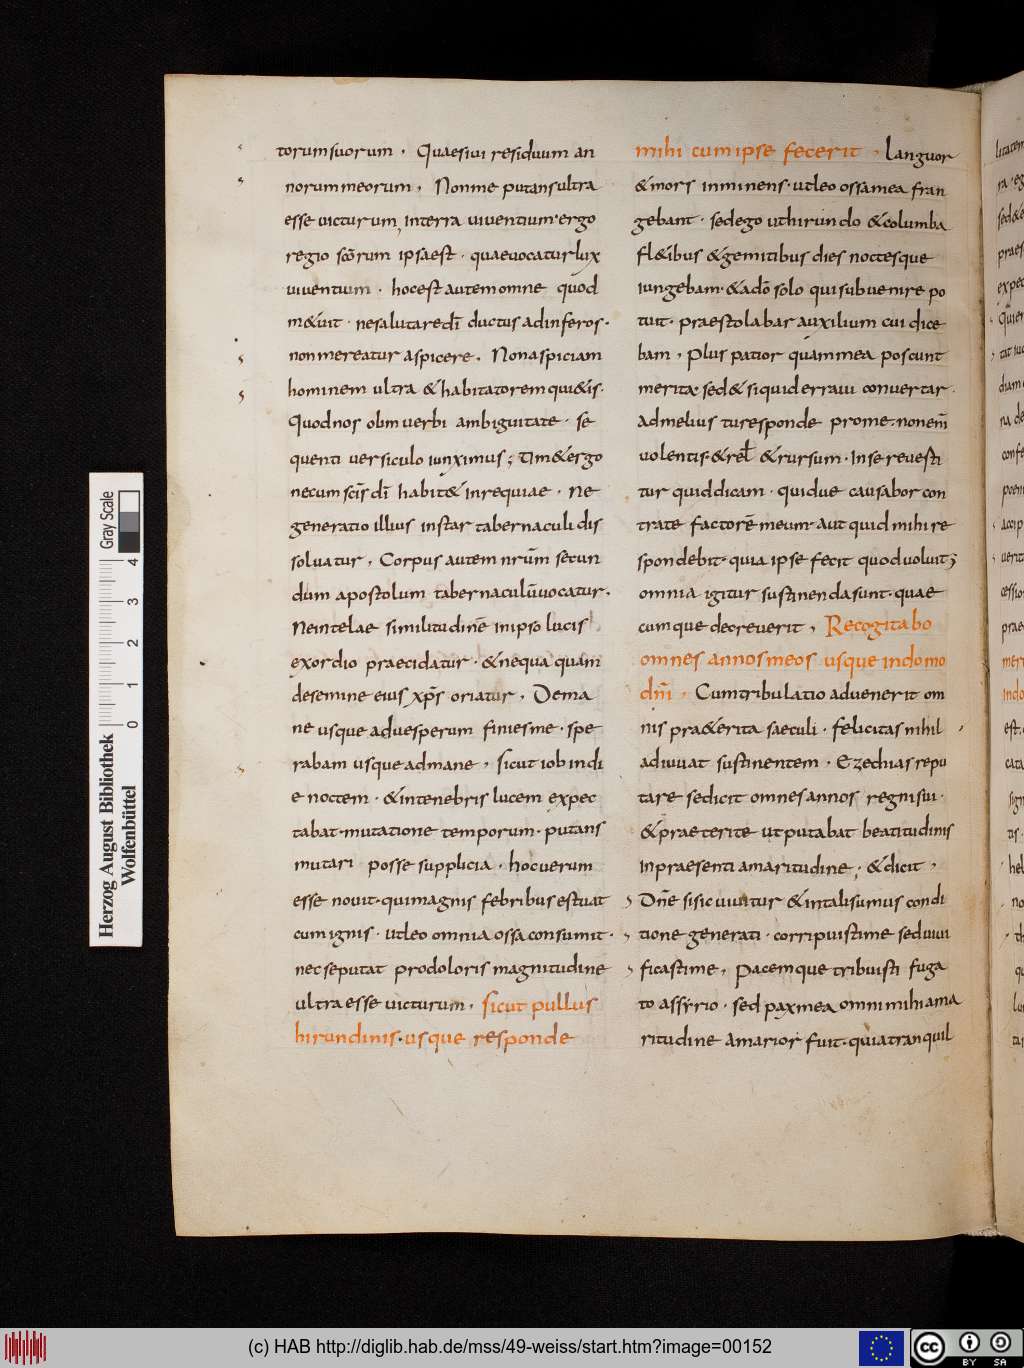 torum suorum . Quaesiui residuum an
norum meorum . Nonne putans ultra
esse uicturum, in terra uiuentium. ergo
regio scõrum ipsa est . quae uocatur lux
uiuentium . hoc est autem omne quod
m&uit . ne salutare dī ductus ad inferos.
non merear aspicere . Non aspiciam
hominem ultra & habitatorem qui&is.
Quod nos ob uerbi ambiguitate . se
quenti uersiculo iunximus; &ergo
necum scīs dī habit& in requiae . Ne
generatio illius instar tabernaculi dis
soluatur . Corpus autem nrūm secun
dum apostolum tabernaculū uocatur.
Ne in telae similitudinē in ipso lucis
exordio praecidatur . & nequaquam
de semine eius xp̄s oriatur . De ma
ne usque ad uesperum finies me . spe
rabam usque ad mane . sicut iob in di
e noctem . & in tenebris lucem expec
tabat. mutatione temporum. putans
mutari posse supplicia . hoc uerum
esse nouit. qui magnis febribus estuat
cum ignis . ut leo omnia ossa consumit .
nec se putat prodoloris magnitudine
ultra esse uicturum . sicut pullus
hirundinis. usque responde
mihi cum ipse fecerit . languor
& mors inminens. ut leo ossa mea fran
gebant . sed ego ut hirundo & columba
fl&ibus & gemitibus dies noctesque
iungebam. & a dō solo qui subuenire po
tuit. praestolabar auxilium cui dice
bam . Plus patior quam mea poscunt
merita. sed & si quid erraui conuertar .
ad melius tu responde pro me. non enī
uolentis. & rel̄ & rursum . In se reuesti
tur quid dicam . quid ue causabor con
tra te factorē meum. aut quid mihi re
spondebit. quia ipse fecit quod uoluit;
omnia igitur sustinenda sunt. quae
cumque decreuerit . Recogitabo
omnes annos meos usque in domo
dm̄ . Cum tribulatio aduenerit om
nis pra&erita saeculi . felicitas nihil
adiuuat sustinentem . Ezechias repu
tare se dicit omnes annos regni sui .
& praeterite ut putabat beatitudinis
in praesenti amaritudine . & dicit .
Dn̄e si sic uiuitur & in talis condi
tione generati . corripuisti me sed uiui
ficasti me . Pacemque tribuisti fuga
to assyrio . sed pax mea omni mihi ama
ritudine amarior fuit. quia tranquil
Herzog August Bibliothek
Wolfenbüttel
0 1 2 3 4
Gray Scale
(c) HAB http://diglib.hab.de/mss/49-weiss/start.htm?image=00152
cc BY SA